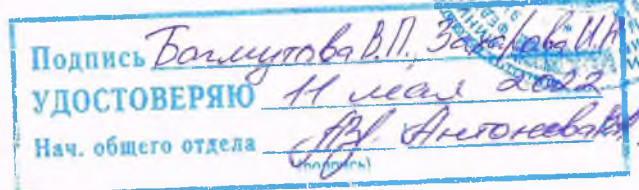 Подпись Багмутова В.П., Захарова И.Н
УДОСТОВЕРЯЮ 11 мая 2022
Нач. общего отдела
(подпись)